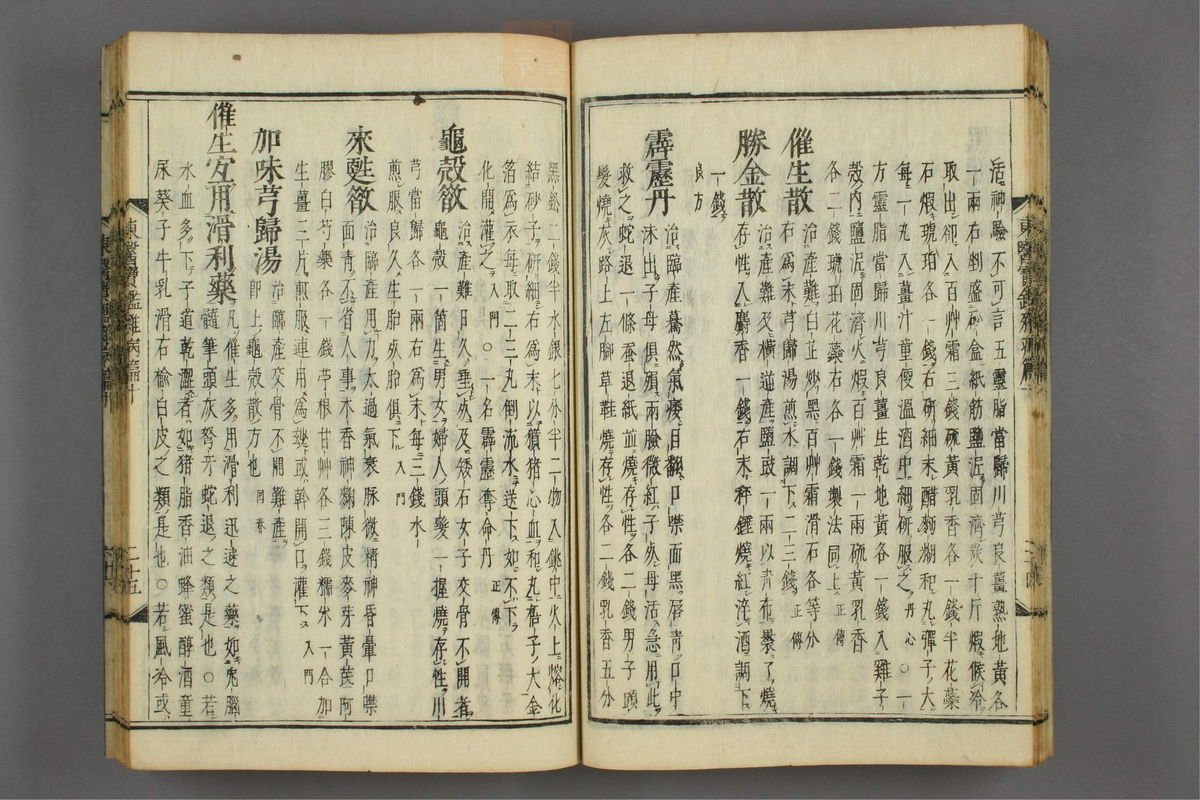 活神驗不可言五靈脂當歸川芎良薑熟地黃各
一兩右剉盛砂盒紙筋鹽泥固濟炭十斤煆候冷
取出却入百艸霜三錢硫黃乳香各一錢半花蘂
石煆琥珀各一錢右研細末醋麪糊和丸彈子大
每一丸入薑汁童便溫酒中細硏服之丹心○一
方靈脂當歸川芎良薑生乾地黃各一錢入雞子
殼內鹽泥固濟火煆百艸霜一兩硫黃乳香
各二錢琥珀花蘂石各一錢製法同上正傳
催生散 治產難白芷炒黑百艸霜滑石各等分
右爲末芎歸湯煎水調下二三錢正傳
勝金散 治產難及橫逆產鹽豉一兩以青布裹了燒
存性入麝香一錢右末秤錘燒紅淬酒調下
一錢
良方
霹靂丹 治臨產驀然氣痿目翻口噤面黑唇青口中
沫出子母俱殞兩臉微紅子死母活急用此
救之蛇退一條蚕退紙並燒存性各二錢男子頭
髮燒灰路上左脚草鞋燒存性各二錢乳香五分
黑鉛二錢半水銀七分半二物入銚中火上熔化
結砂子研細右爲末以獖猪心血和丸梧子大金
箔爲衣每取二三丸倒流水送下如不下
化開灌之入門○一名霹靂奪命丹正傳
龜殼散 治產難日久垂死及矮石女子交骨不開者
龜殼一箇生男女婦人頭髮一握燒存性川
芎當歸各一兩右爲末每三錢水
煎服良久生胎死胎俱下入門
來甦散 治臨產用力太過氣衰脉微精神昏暈口噤
面青不省人事木香神麴陳皮麥芽黃茋阿
膠白芍藥各一錢苧根甘艸各三錢糯米一合加
生薑三片煎服連用爲幾或斡開口灌下入門
加味芎歸湯 治臨產交骨不開難產
卽上龜殼散方也同春
催生宜用滑利藥 凡催生多用滑利迅速之藥如兎腦
髓筆頭灰弩牙蛇退之類是也○若
水血多下子道乾澁者如猪脂香油蜂蜜醇酒童
尿葵子牛乳滑石楡白皮之類是也○若風冷或
東醫寶鑑雜病篇十
二十五